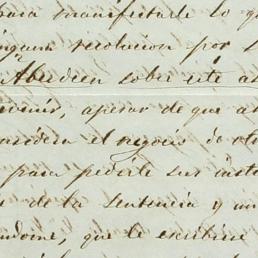 para manifestarle lo qu
inguna resolucion por L
Aberdeen sobre este a
, apesar de que a
considera el negocio de ot
para pedirle sus inst
de la sentencia y un
ndome, que le escribia